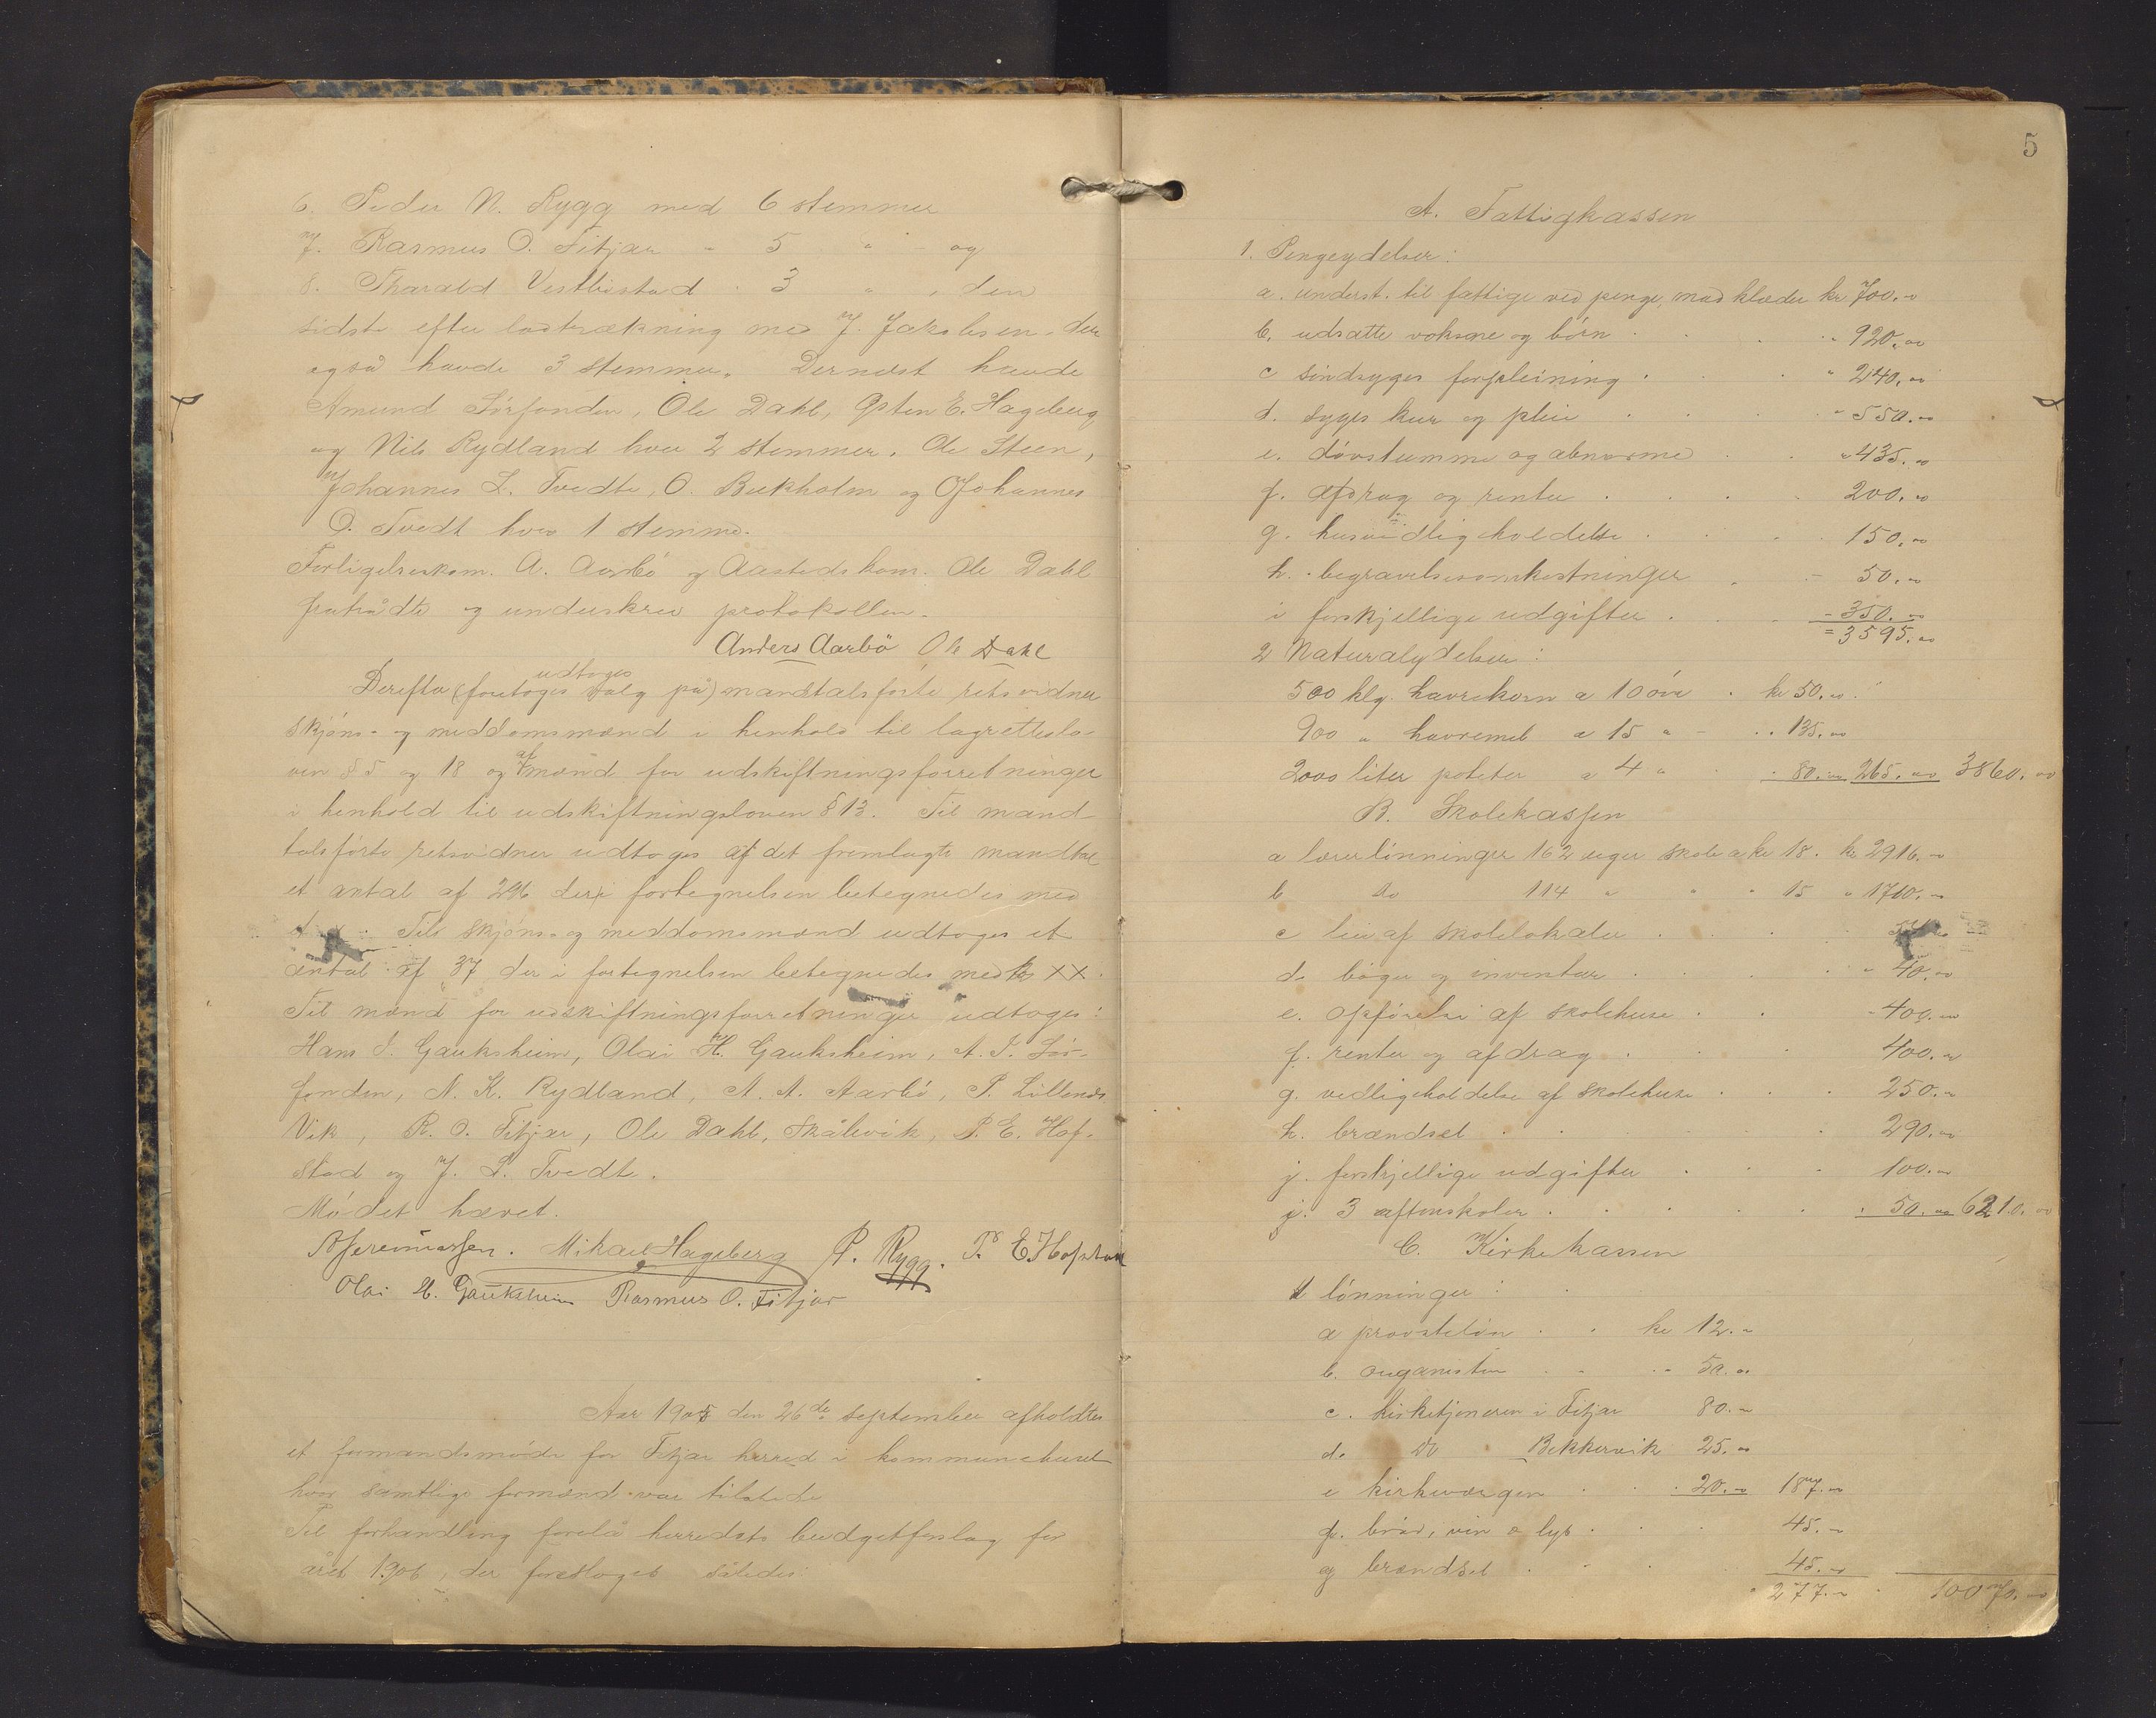 6. Peder N. Rygg med 6 stemmer
7. Rasmus O. Fitjar " 5 " - og
8. Tharald Vestbøstad " 3 " , den
sidste efter lodtrækning med J. Jakobsen, der
også havde 3 stemmer. Dernæst havde
Amund Sörfonden, Ole Dahl, Østen E. Hageberg
og Nils Rydland hver 2 stemmer. Ole Steen,
Johannes L. Tvedte, O. Bekkholm og Johannes
O. Tvedt hver 1 stemme.
Forligelseskom. A. Aarbö og Aastedskom. Ole Dahl
fratrådte og underskrev protokollen.
Anders Aarbö Ole Dahl
udtoges
Derefter (foretoges valg på) mandtalsförte retsvidner
skjöns- og meddomsmænd i henhold til lagretteslo-
ven § 5 og 18 og af mænd for udskiftningsforretninger
i henhold til udskiftningsloven § 13. Til mand-
talsförte retsvidner udtoges af det fremlagte mandtal
et antal af 296 der i fortegnelsen betegnedes med
et Til skjöns- og meddomsmænd udtoges et
antal af 37 der i fortegnelsen betegnedes med XX.
Til mænd for udskiftningsforretninger udtoges:
Hans J. Gauksheim, Olai H. Gauksheim, A. J. Sör-
fonden, N. K. Rydland, A. A. Aarbö, P. Lillenæs
Vik, R. O. Fitjar, Ole Dahl, Skålevik, P. E. Hof-
stad og J. L. Tvedte.
Mödet hævet.
Mikael Hageberg P. Rygg. P. E Hofstad
Olai H. Gauksheim Rasmus O. Fitjar
Aar 1905 den 26de september afholdtes
et formandsmöde for Fitjar herred i kommunehuset
hvor samtlige formænd var tilstede
Til forhandling forelå herredets budgetforslag for
året 1906, der foresloges således:
5
A. Fattigkassen
1. Pengeydelser:
a. underst. til fattige ved penge, mad klæder kr 700.-
b. udsatte voksne og börn . . " 920.00
c sindsyges forpleining . . " 240.00
d. syges kur og pleie . . " 550.00
e. dövstumme og abnorme . . " 435.00
f. afdrag og renter . . . 200.00
g. husvedligeholdelse . . . 150.00
h. begravelsesomkostninger . - 50.00
i forskjellige udgifter . . - 350.00
= 3595.00
2 Naturalydelser:
500 klg. havrekorn a 10 öre . kr 50.00
900 " havremel a 15 " - . . 135.00
2000 liter poteter a 4 " . . 80.00 265.00 3860.00
B. Skolekassen
a lærerlönninger 162 uger skole a kr 18. kr 2916.-
b do 114 " " " 15 " 1710.-
c leie af skolelokaler . . .
d. böger og inventar . . . " 40.00
e. opförelse af skolehuse . . - 400.00
f. renter og afdrag . . . 400.-
g. vedligeholdelse af skolehuse . . . 250.-
h. brændsel . . . 290.00
j. forskjellige udgifter . . . 100.00
j. 3 aftenskoler . . . . 50.00 6210.00
C. Kirkekassen
1 lönninger:
a provstelön . . kr 12.-
b. organisten . - . . 50.00
c. kirketjeneren i Fitjar 80.-
d. Do " Bekkervik 25.00
e kirkeværgen . . . 20.- 187.00
f. bröd, vin & lys . . . 45.-
g brændsel . . . 45.-
277.- . 10070.-